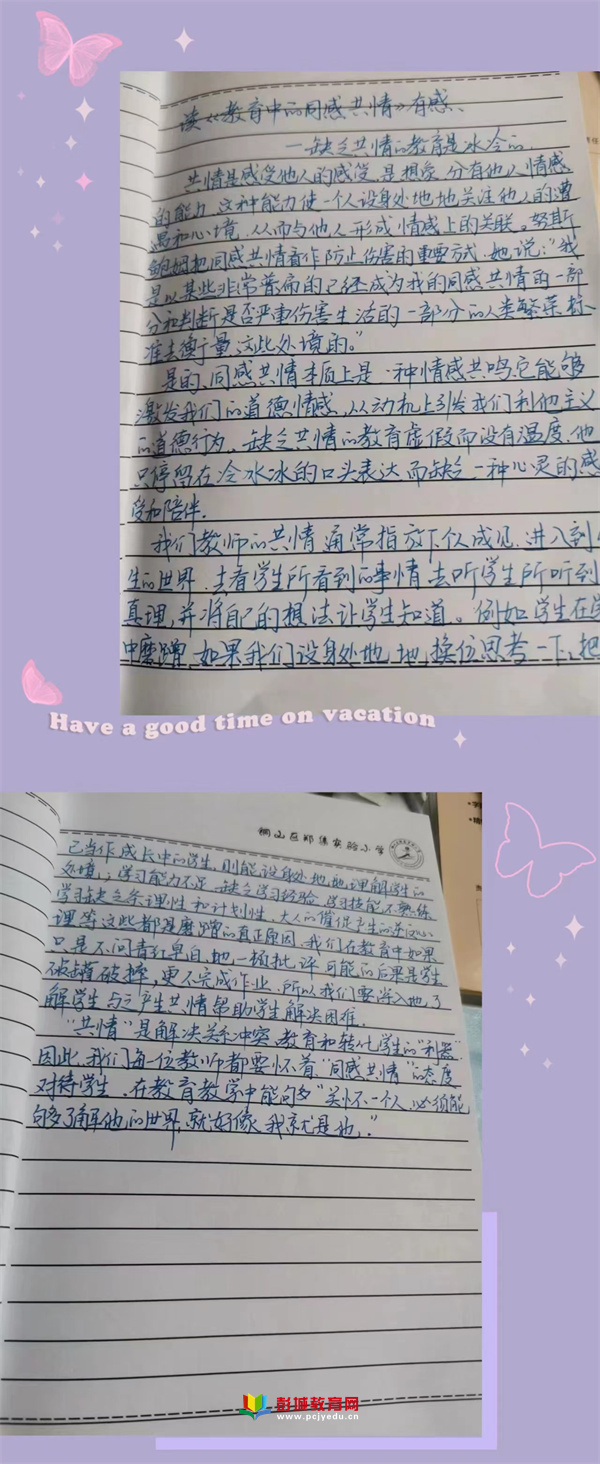 读《教育中的同感共情》有感
—缺乏共情的教育是冰冷的
共情是感受他人的感受,是想象、分有他人情感
的能力,这种能力使一个人设身处地地关注他人的遭
遇和心境,从而与他人形成情感上的关联。努斯
鲍姆把同感共情看作防止伤害的重要方式,她说:“我
是以某些非常普遍的已经成为我的同感共情的一部
分和判断是否严重伤害生活的一部分的人类繁荣标
准去衡量这些处境的。”
是的,同感共情本质上是一种情感共鸣,它能够
激发我们的道德情感,从动机上引发我们利他主义
的道德行为。缺乏共情的教育虚假而没有温度,他
只停留在冷冰冰的口头表达而缺乏一种心灵的感
受和陪伴.
我们教师的共情通常指放下成见,进入到
生的世界,去看学生所看到的事情,去听学生所听到
真理,并将自己的想法让学生知道。例如学生在
中磨蹭,如果我们设身处地地,换位思考一下,把
Have a good time on vacation
铜山区郑集实验小学
己当作成长中的学生,则能设身处地地理解学生的
处境,学习能力不足,缺乏学习经验,学习技能不熟练
学习缺乏条理性和计划性,大人的催促产生的逆反心
理等这些都是磨蹭的真正原因。我们在教育中如果
只是不问青红皂白地一顿批评,可能的后果是学生
破罐破摔,更不完成作业。所以我们要深入地了
解学生与之产生共情帮助学生解决困难.
“共情”是解决关系冲突、教育和转化学生的“利器”
因此,我们每一位教师都要怀着“同感共情”的态度
对待学生,在教育教学中能够多“关怀一个人,必须能
够了解他的世界,就好像我就是他。”
彭城教育网
www.pcjyedu.cn